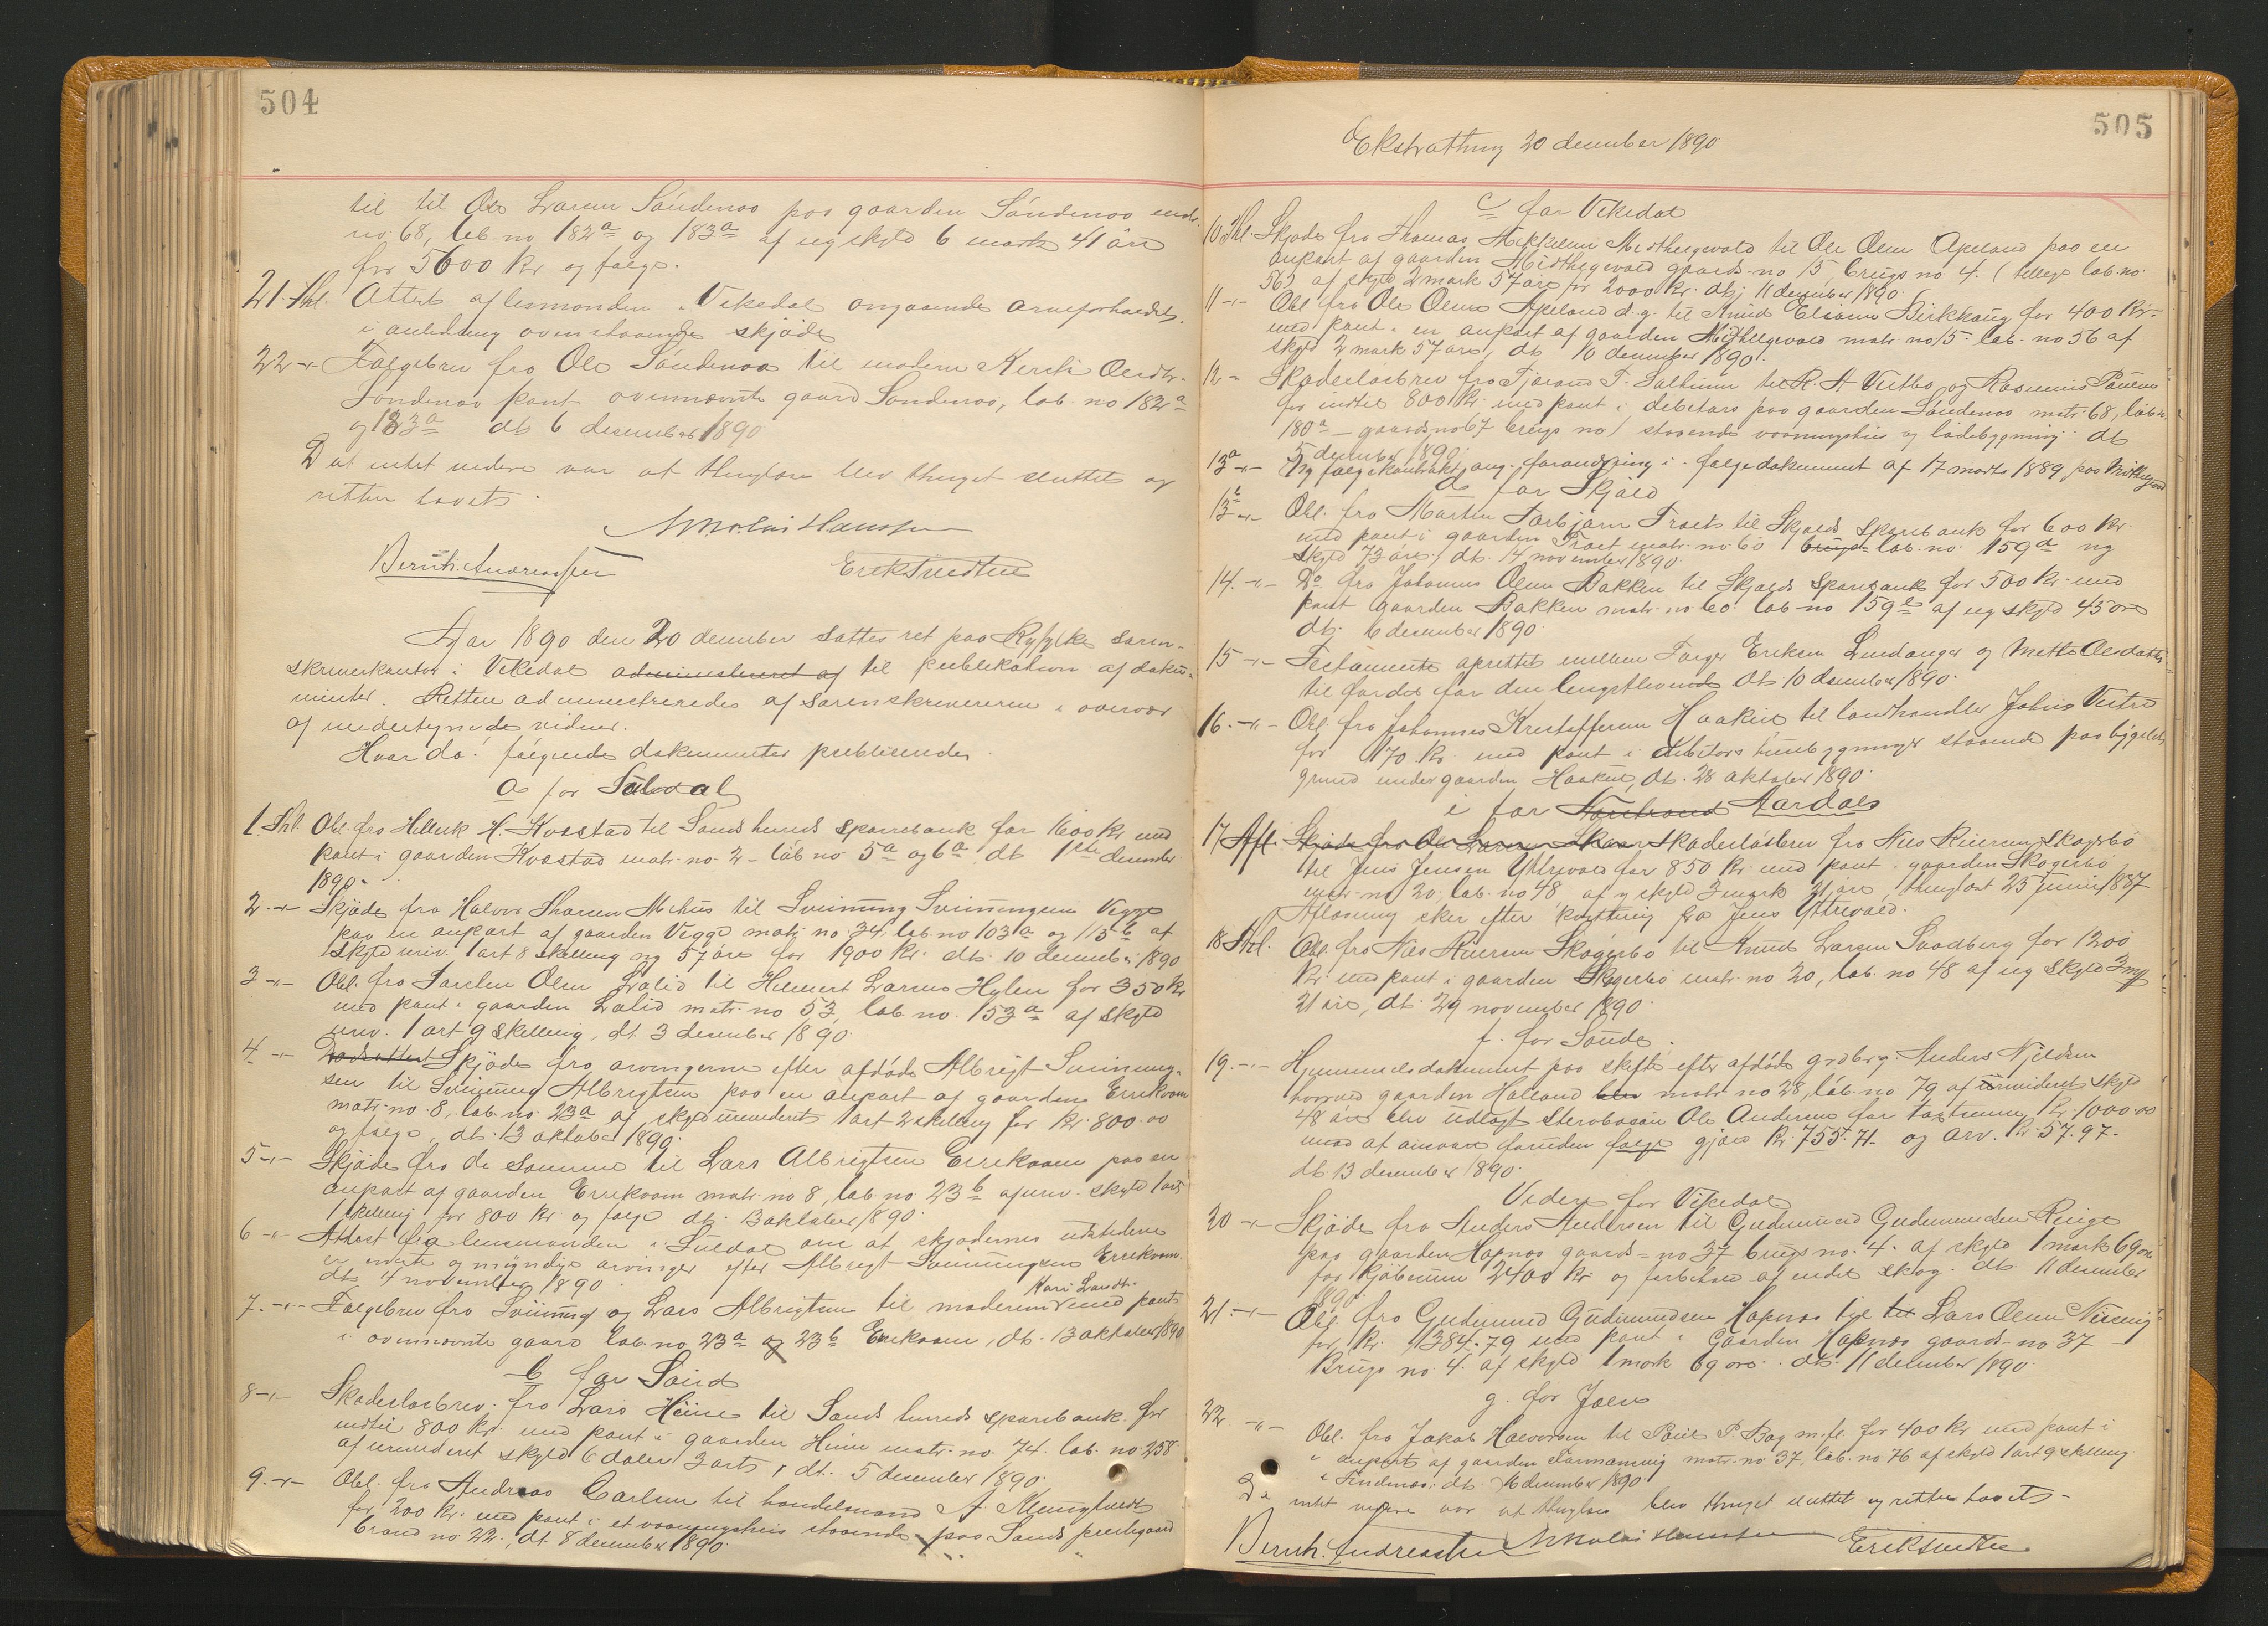 504
til til Ole Larsen Søndenaa paa gaarden Søndenaa matr.
no 68, løb. no 182a og 183a af ny skyld 6 mark 41 øre
for 5600 kr og følge.
21. Thl. Attest af lensmanden i Vikedal angaaende arveforholdet
i anledning ovenstaaende skjøde
22 -"- Følgebrev fra Ole Søndenaa til moderen Kirsti Olsdtr.
Søndenaa pant ovennævnte gaard Søndenaa, løb. no 182a
og 183a dt 6 desember 1890
Da intet videre var at thinglæse blev thinget sluttet og
retten hævet.
Nikolai Hanssen
Bernh. Andreassen
Erik Tvedten
Aar 1890 den 20 december sattes ret paa Ryfylke soren-
skriverkontor i Vikedal administreret af til publikation af doku-
menter. Retten administreredes af sorenskriveren i overvær
af undertegnede vidner.
Hvor da: følgende dokumenter publiceredes
a for Suledal
1. Thl. Obl. fra Hellek H. Kvæstad til Sands herreds sparebank for 1600 kr med
pant i gaarden Kvæstad matr. no 2 - løb no 5a og 6a dt 1ste desember
1890.
2. -"- Skjøde fra Halvor Thorsen Mehus til Sveinung Sveinungsen Vegge
paa en anpart af gaarden Vegge matr no 34. løb. no 103a og 115b af
skyld urev. 1 ort 8 skilling ny 57 øre for 1900 kr. dt. 10 december 1890
3 -"- Obl. fra Olsen Lalid til Helmert Larsens Hylen for 350 kr
med pant i gaarden Lalid matr. no 53, løb. no. 153a af skyld
urev. 1 ort 9 skilling, dt. 3 desember 1890.
4 -"- Dødsattest Skjøde fra arvingerne efter afdøde Albrigt Sveinung-
sen til Sveinung Albrigtsen paa en anpart af gaarden Errekvam
matr. no. 8, løb. no. 23a af skyld urevideret 1 ort 2 skilling for kr. 800.00
og følge, dt. 13 oktober 1890.
5 -"- Skjøde fra de samme til Lars Albrigtsen Errekvam paa en
anpart af gaarden Errekvam matr. no 8, løb. no. 23b af urev. skyld 1 ort
1 skilling for 800 kr og følge dt. 13 oktober 1890.
6 -"- Attest fra lensmanden i Suledal om at skjødernes udstedere
er eneste og myndige arvinger efter Albrigt Sveinungsen Errekvam.
dt. 4 november 1890.
7. -"- Følgebrev fra Sveinung og Lars Albrigtsen til moderen Kari Larsdtr. med pant
i ovennævnte gaard løb. no. 23a og 23b Errekvam, dt. 13 oktober 1890
b for Sand
8 -"- Skadesløsbrev fra Lars Hiim til Sands herreds sparebank for
indtil 800 kr. med pant i gaarden Hiim matr. no. 74. løb. no. 258
af urevideret skyld 6 daler 3 orts, dt. 5 desember 1890.
9. -"- Obl. fra Andreas Carlsen til handelsmand A.
for 200 kr. med pant i et vaaningshus staaende paa Sands prestegaard
brand no 22., dt. 8 december 1890.
505
Ekstrathing 20 december 1890
c for Vikedal
10 Thl. Skjøde fra Thomas Mikkelsen Midthegevold til Ole Olsen Apeland paa en
anpart af gaarden Midthegevold gaards-no 15, brugs no 4. (tillige løb. no.
56) af skyld 2 mark 57 øre for 2000 kr. dt. 11 desember 1890.
11 -"- Obl. fra Ole Olsens Apeland d.y. til Knud Eliasen Birkhaug for 400 kr.
med pant i en anpart af gaarden Midthegevold matr. no 15. løb. no 56 af
skyld 2 mark 57 øre, dt 10 december 1890.
12 - Skadesløsbrev fra Tjærand T. Sæltinn til R. A Vestbø og Rasmus Paulsen
for indtil 800 kr. med pant i debitors paa gaarden Søndenaa matr. 68, løb.
180a - gaards no 67 brugs no 1 staaende vaaningshus og ladebygning dt
5 december 1890.
13a -"- Ny følgekontrakt ang. forandring i følgedokument af 17 marts 1889 paa Midthegevold
d for Skjold
13b -"- Obl. fra Martin Torbjørn Traet til Skjolds Sparebank for 600 kr.
med pant i gaarden Traet matr. no. 60 brugs løb. no. 159a ny
skyld 73 øre, dt. 14 november 1890.
14. -"- Do fra Johannes Olsen Bakken til Skjolds Sparebank for 500 kr. med
pant gaarden Bakken matr. no 60. løb. no 159e af ny skyld 45 øre
dt. 6 december 1890.
15 -"- Testamente oprettet mellem Torger Eriksen Lindanger og Mette Olsdatter
til fordel for den længstlevende dt. 10 desember 1890.
16. -"- Obl. fra Johannes Kristoffersen Haakull til landhandler Johns Vestre
for 170 kr. med pant i debitors husebygninger staaende paa bygslet
grund under gaarden Haakull, dt. 28 oktober 1890.
i for Nærstrand Aardals
17 Afl. Skjøde fra Ole Larsen Skaar Skadesløsbrev fra Nils Reiersen Skogerbø
til Jens Jensen Ytrevold for 850 kr. med pant i gaarden Skogerbø
matr. no 20, løb. no 48 af ny skyld 3 mark 21 øre, thinglæst 25 juni 1887
Aflæsning sker efter kvittering fra Jens Yttrevold.
18 Thl. Obl. fra Nils Reiersen Skogerbø til Knud Larsen Svadberg for 1200
kr. med pant i gaarden Skogerbø matr. no 20, løb. no 48 af ny skyld 3 m
21 øre, dt. 29 november 1890.
f. for Saude.
19. -"- Hjemmelsdokument paa skifte efter afdøde grdbrg. Anders Njeldsen
hvorved gaarden Halland blev matr no 28, løb. no 79 af urevideret skyld
48 øre blev udlagt sterbosøn Ole Andersens for taxtsum kr. 1000.00
mod at ansvare foruden følge gjæld kr. 755.71 og arv. kr. 57.97.
dt. 13 desember 1890.
Videre for Vikedal
20 -"- Skjøde fra Anders Andersen til Gudmund Gudmundsen Ringe
paa gaarden Hapnæs gaards-no 37 brugs no. 4. af skyld 1 mark 69 øre
for kjøbesum 2400 kr og forbehold af endel skog. dt. 11 december
1890.
21 -"- Obl. fra Gudmund Gudmundsen Hapnæs til til Lars Olsen
for kr. 1384.79 med pant i Gaarden Hapnæs gaards-no 37
Brugs no 4. af skyld 1 mark 69 øre. dt. 11 december 1890.
g. for Jelse
22. -"- Obl. fra Jakob Halvorsen til Poul P. Bog m.fl. for 400 kr med pant i
i anpart af gaarden matr. no. 37, løb. no 76 af skyld 1 ort 9 skilling
i Tindenæs, dt. 16 december 1890.
Da intet videre var at thinglæse blev thinget sluttet og retten hævet.
Bernh. Andreassen Nikolai Hanssen Erik Tvedten